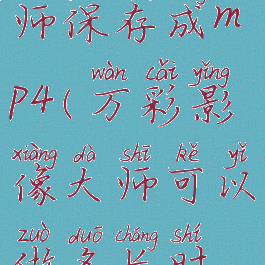 师保存成m
wàn cǎi yǐng
p4(万彩影
xiàng dà shī kě yǐ
像大师可以
zuò duō cháng shí
做多长时